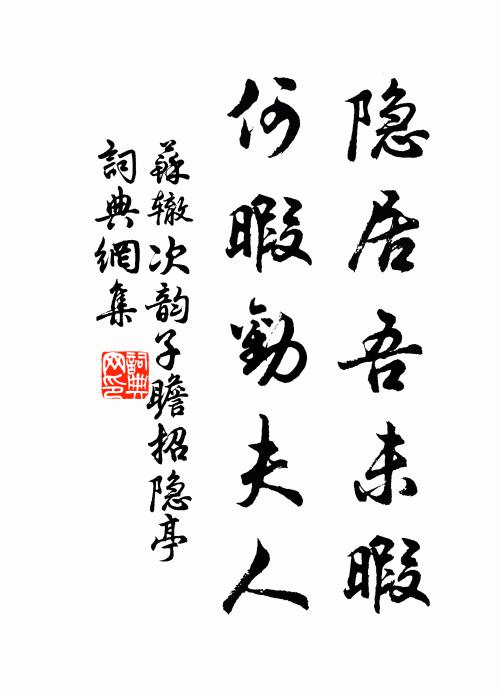 隐居吾未暇
何暇勸夫人
蘇辙次韵子瞻招隐亭
詞典網集
詞典网印